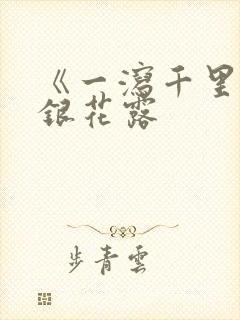 《一瀉千里
銀花露
步青雲